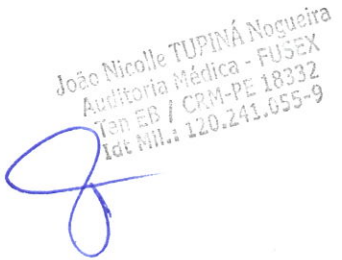 João Nicolle TUPINÁ Nogueira
Auditoria Médica - FUSEX
Ten EB | CRM-PE 18332
Idt Mil.: 120.241.055-9